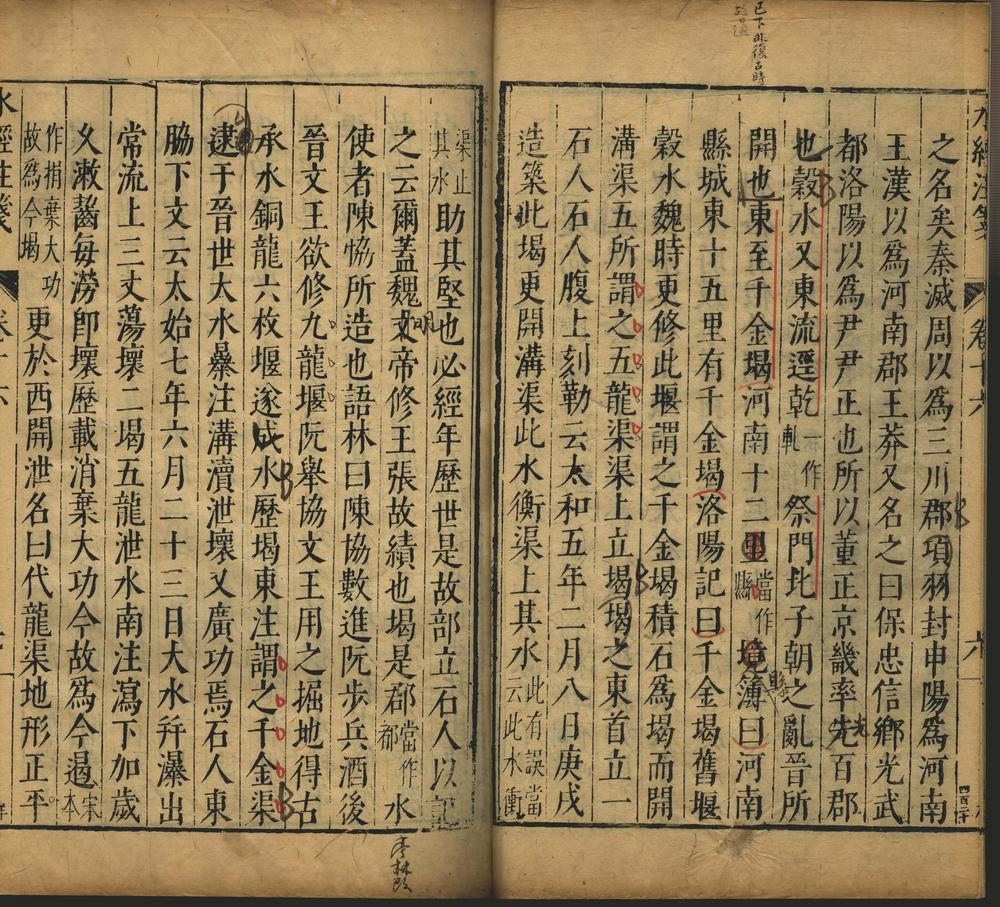 已下非復古時
水經注箋
卷十六
之名矣秦滅周以爲三川郡項羽封申陽爲河南
王漢以爲河南郡王莽又名之曰保忠信鄉光武
都洛陽以爲尹尹正也所以董正京畿率先百郡
也穀水又東流逕乾一作乹祭門北子朝之亂晉所
開也東至千金堨河南十二里當作縣境簿曰河南
縣城東十五里有千金堨洛陽記曰千金堨舊堰
穀水魏時更修此堰謂之千金堨積石爲堨而開
溝渠五所謂之五龍渠渠上立堨堨之東首立一
石人石人腹上刻勒云太和五年二月八日庚戌
造築此堨更開溝渠此水衡渠上其水此有誤當云此水衝
渠止其水助其堅也必經年歷世是故部立石人以記
之云爾蓋魏文帝修王張故績也堨是郡當作都水
使者陳恊所造也語林曰陳協數進阮步兵酒後
晉文王欲修九龍堰阮舉協文王用之掘地得古
承水銅龍六枚堰遂成水歷堨東注謂之千金渠
逮于晉世大水暴注溝瀆泄壞又廣功焉石人東
脇下文云太始七年六月二十三日大水幷瀑出
常流上三丈蕩壞二堨五龍泄水南注瀉下加歲
久漱齧每澇卽壞歷載消棄大功今故爲今遏宋本
作捐棄大功故爲今堨更於西開泄名曰代龍渠地形正平
水經注箋
卷十六